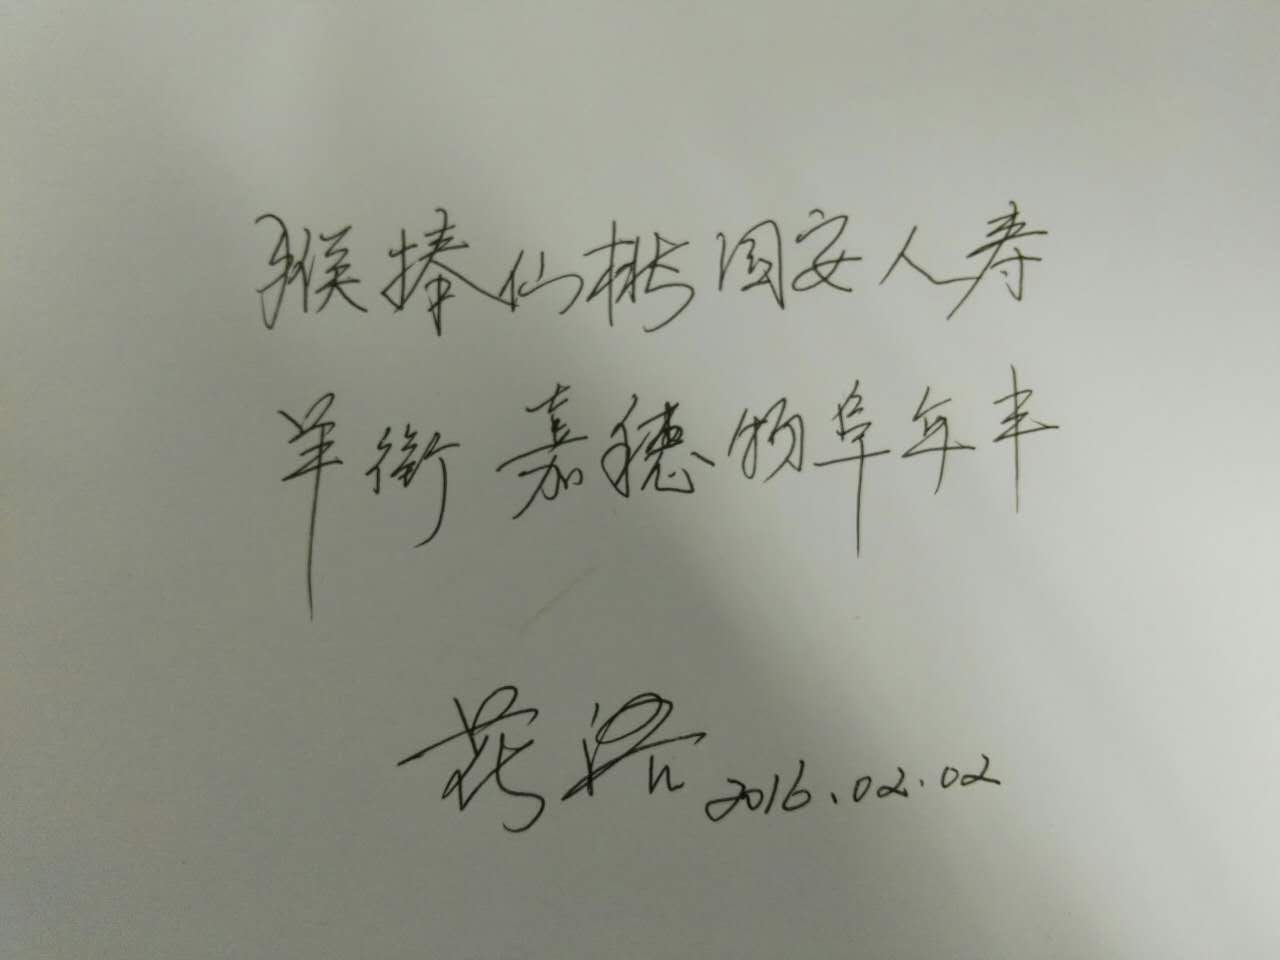 猴捧仙桃国安人寿
羊衔嘉穗物阜年丰
2016.02.02